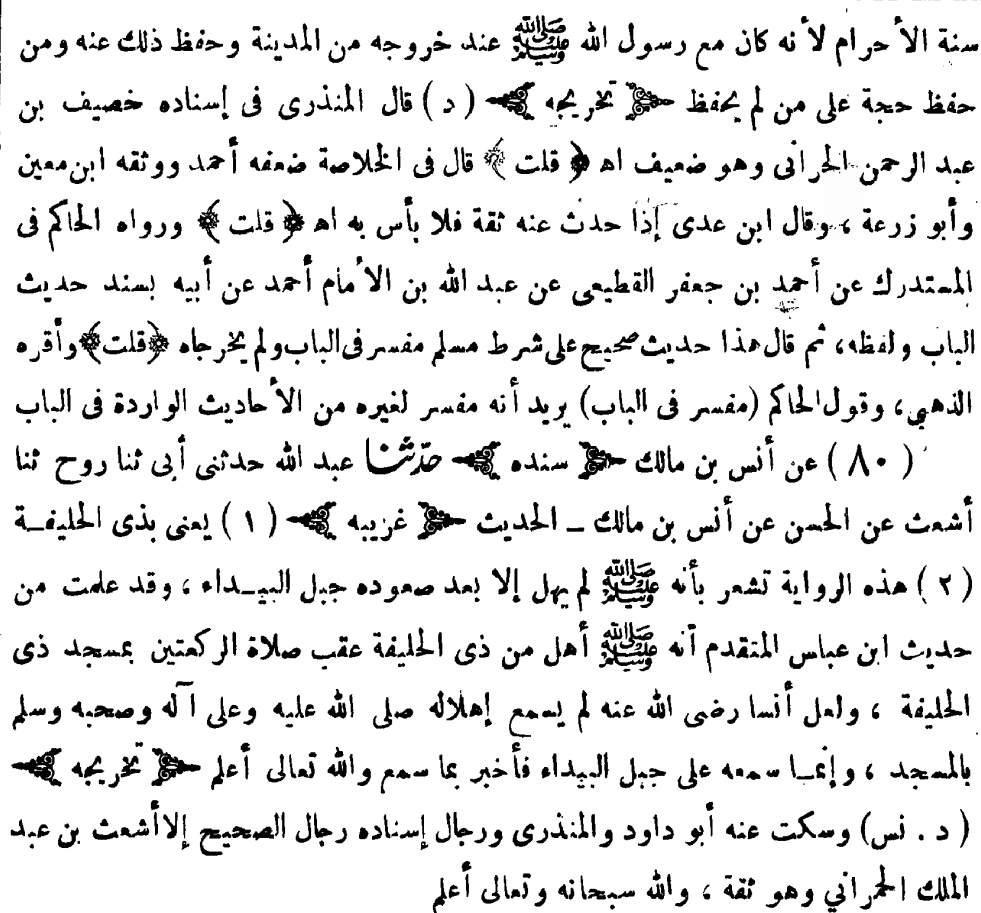 سنة الأحرام لأنه كان مع رسول الله ﷺ عند خروجه من المدينة وحفظ ذلك عنه ومن
حفظ حجة على من لم يحفظ ﴿ تخريجه ﴾ ( د ) قال المنذرى فى إسناده خصيف بن
عبد الرحمن الحرانى وهو ضعيف اهـ ﴿ قلت ﴾ قال فى الخلاصة ضعفه أحمد ووثقه ابن معين
وأبو زرعة ، وقال ابن عدى إذا حدث عنه ثقة فلا بأس به اهـ ﴿ قلت ﴾ ورواه الحاكم فى
المستدرك عن أحمد بن جعفر القطيعى عن عبد الله بن الأمام أحمد عن أبيه بسند حديث
الباب ولفظه، ثم قال هذا حديث صحيح على شرط مسلم مفسر فى الباب ولم يخرجاه ﴿قلت﴾ وأقره
الذهبى، وقول الحاكم (مفسر فى الباب) يريد أنه مفسر لغيره من الأحاديث الواردة فى الباب
( ٨٠ ) عن أنس بن مالك ﴿ سنده ﴾ حدّثنا عبد الله حدثنى أبى ثنا روح ثنا
أشعث عن الحسن عن أنس بن مالك ـ الحديث ﴿ غريبه ﴾ ( ١ ) يعنى بذى الحليفـة
( ٢ ) هذه الرواية تشعر بأنه ﷺ لم يهل إلا بعد صعوده جبل البيـداء ، وقد علمت من
حديث ابن عباس المتقدم أنه ﷺ أهل من ذى الحليفة عقب صلاة الركعتين بمسجد ذى
الحليفة ، ولعل أنسا رضى الله عنه لم يسمع إهلاله صلى الله عليه وعلى آله وصحبه وسلم
بالمسجد ، وإنمـا سمعه على جبل البيداء فأخبر بما سمع والله تعالى أعلم ﴿ تخريجه ﴾
( د . نس) وسكت عنه أبو داود والمنذرى ورجال إسناده رجال الصحيح إلا أشعث بن عبد
الملك الحمراني وهو ثقة ، والله سبحانه وتعالى أعلم